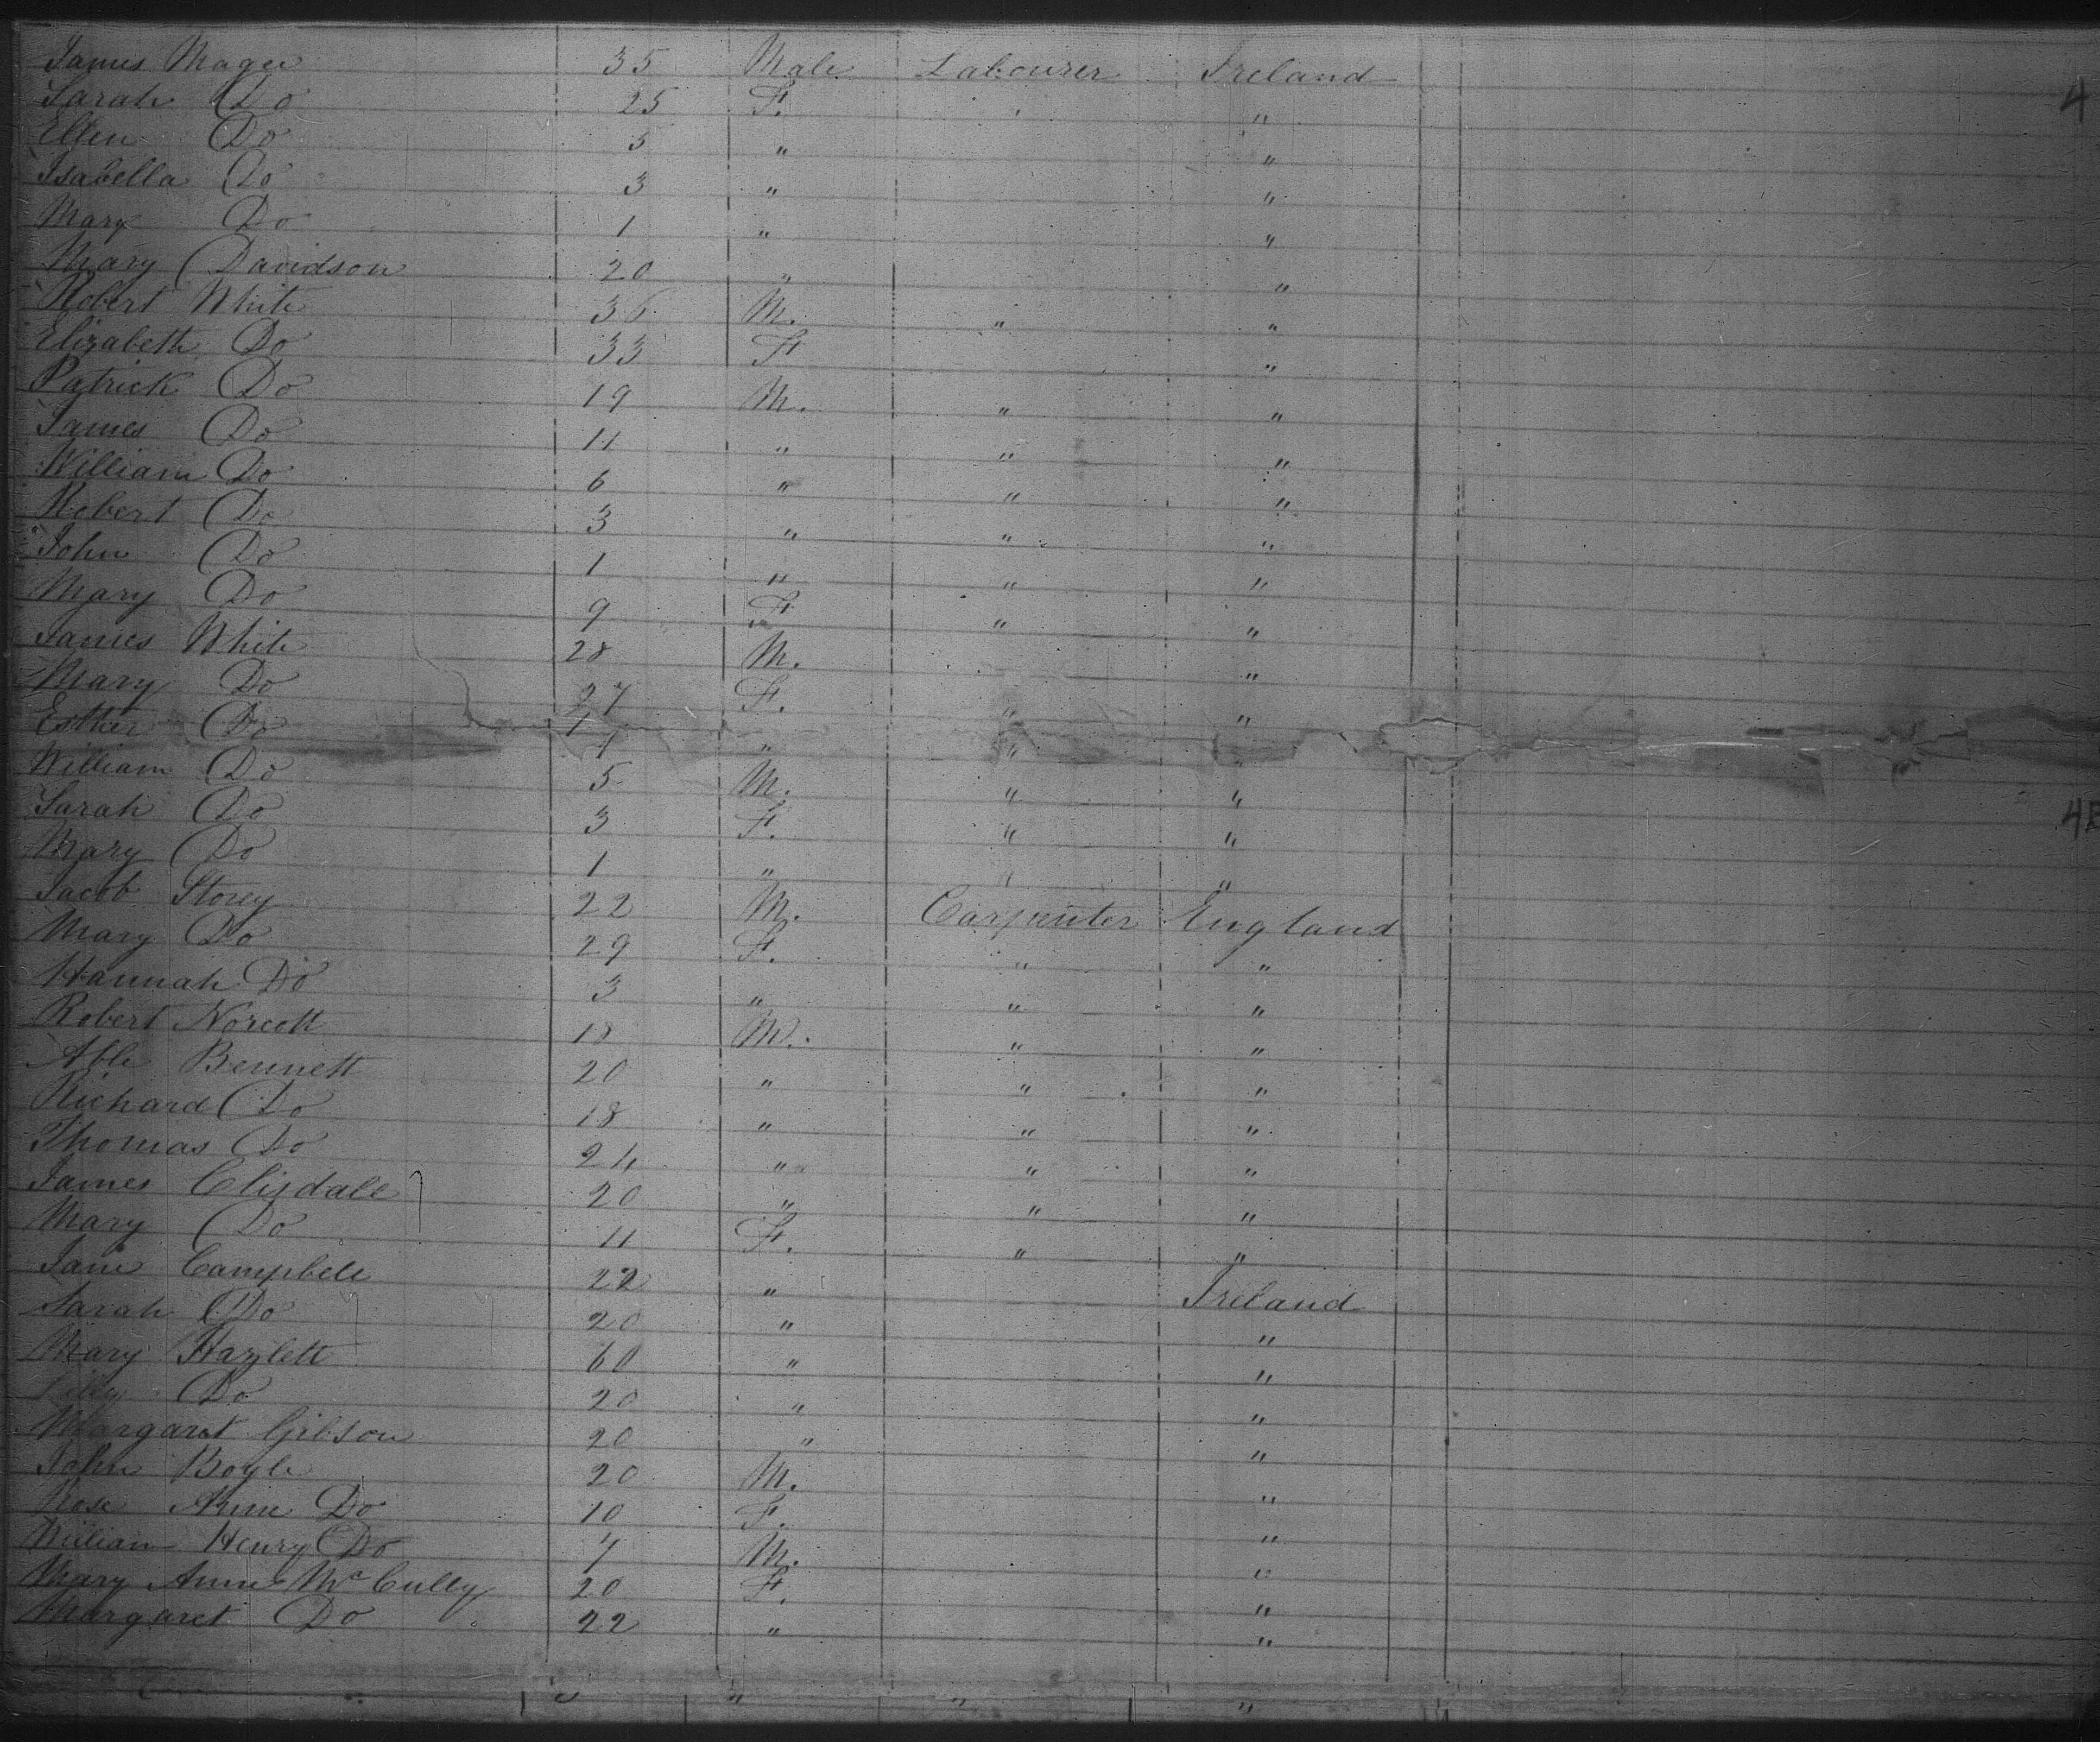 James Magee 35 Male Labourer Ireland
Sarah Do 25 F. " 4
Ellen Do 5 " "
Isabella Do 3 " "
Mary Do 1 " "
Mary Davidson 20 " "
Robert White 36 M. " "
Elizabeth Do 33 F "
Patrick Do 19 M. " "
James Do 11 " " "
William Do 6 " " "
Robert Do 3 " " "
John Do 1 " " "
Mary Do 9 F " "
James White 28 M. "
Mary Do 27 F. " "
Esther Do " " "
William Do 5 M. " "
Sarah Do 3 F. " "
Mary Do 1 " " "
Jacob Storey 22 M. Carpenter England
Mary Do 29 F. " "
Hannah Do 3 " " "
Robert Norcott 18 M. " "
Able Bennett 20 " " "
Richard Do 18 " " "
Thomas Do 24 " " "
James Clisdale 20 " " "
Mary Do 11 F. " "
Jane Campbell 22 " Ireland
Sarah Do 20 " "
Mary Hazlett 60 " "
Lilly Do 20 " "
Margaret Gibson 20 " "
John Boyle 20 M. "
Rose Anne Do 10 F. "
William Henry Do 7 M. "
Mary Anne McCully 20 F. "
Margaret Do 22 " "
" " "